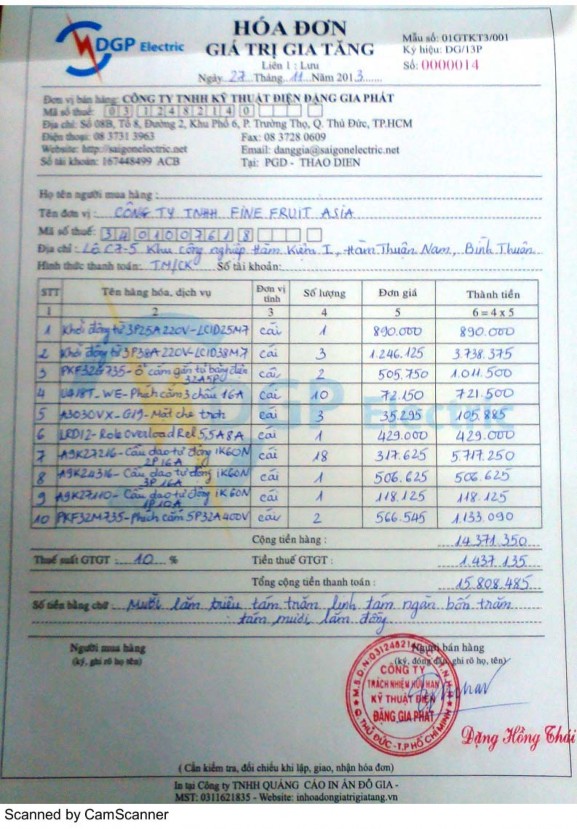 DGP Electric
HÓA ĐƠN
GIÁ TRỊ GIA TĂNG
Liên 1 : Lưu
Ngày 27 Tháng 11 Năm 2013
Mẫu số: 01GTKT3/001
Ký hiệu: DG/13P
Số: 0000014
Đơn vị bán hàng: CÔNG TY TNHH KỸ THUẬT ĐIỆN ĐẶNG GIA PHÁT
Mã số thuế: 0312482140
Địa chỉ: Số 08B, Tổ 8, Đường 2, Khu Phố 6, P. Trường Thọ, Q. Thủ Đức, TP.HCM
Điện thoại: 08 3731 3963 Fax: 08 3728 0609
Website: http://saigonelectric.net Email: danggia@saigonelectric.net
Số tài khoản: 167448499 ACB Tại: PGD - THAO DIEN
Họ tên người mua hàng :
Tên đơn vị : CÔNG TY TNHH FINE FRUIT ASIA
Mã số thuế: 3401007618
Địa chỉ : Lô C7-5 Khu công nghiệp Hàm Kiệm I, Hàm Thuận Nam, Bình Thuận
Hình thức thanh toán: TM/CK Số tài khoản:
STT Tên hàng hóa, dịch vụ Đơn vị tính Số lượng Đơn giá Thành tiền
1 2 3 4 5 6 = 4 x 5
1 Khởi động từ 3P25A 220V-LC1D25M7 cái 1 890.000 890.000
2 Khởi động từ 3P38A 220V-LC1D38M7 cái 3 1.246.125 3.738.375
3 PKF32G735-Ổ cắm gắn tủ bảng điện 32A5P cái 2 505.750 1.011.500
4 U418T_WE-Phích cắm 3 chấu 16A cái 10 72.150 721.500
5 A3030VX-G19-Mặt che trơn cái 3 35.295 105.885
6 LRD12-Role Overload Rel 5,5A8A cái 1 429.000 429.000
7 A9K27216-Cầu dao tự động iK60N 2P 16A cái 18 317.625 5.717.250
8 A9K24316-Cầu dao tự động iK60N 3P 16A cái 1 506.625 506.625
9 A9K27110-Cầu dao tự động iK60N 1P 10A cái 1 118.125 118.125
10 PKF32M735-Phích cắm 5P32A400V cái 2 566.545 1.133.090
Cộng tiền hàng : 14.371.350
Thuế suất GTGT : 10 % Tiền thuế GTGT : 1.437.135
Tổng cộng tiền thanh toán : 15.808.485
Số tiền bằng chữ : Mười lăm triệu tám trăm linh tám ngàn bốn trăm
tám mươi lăm đồng
Người mua hàng Người bán hàng
(ký, ghi rõ họ tên) (ký, đóng dấu, ghi rõ họ, tên)
CÔNG TY
TRÁCH NHIỆM HỮU HẠN
KỸ THUẬT ĐIỆN
ĐẶNG GIA PHÁT
Q. THỦ ĐỨC - T.P HỒ CHÍ MINH
Đặng Hồng Thái
( Cần kiểm tra, đối chiếu khi lập, giao, nhận hóa đơn)
In tại Công ty TNHH QUẢNG CÁO IN ẤN ĐỖ GIA -
MST: 0311621835 - Website: inhoadongiatrigiatang.vn
Scanned by CamScanner